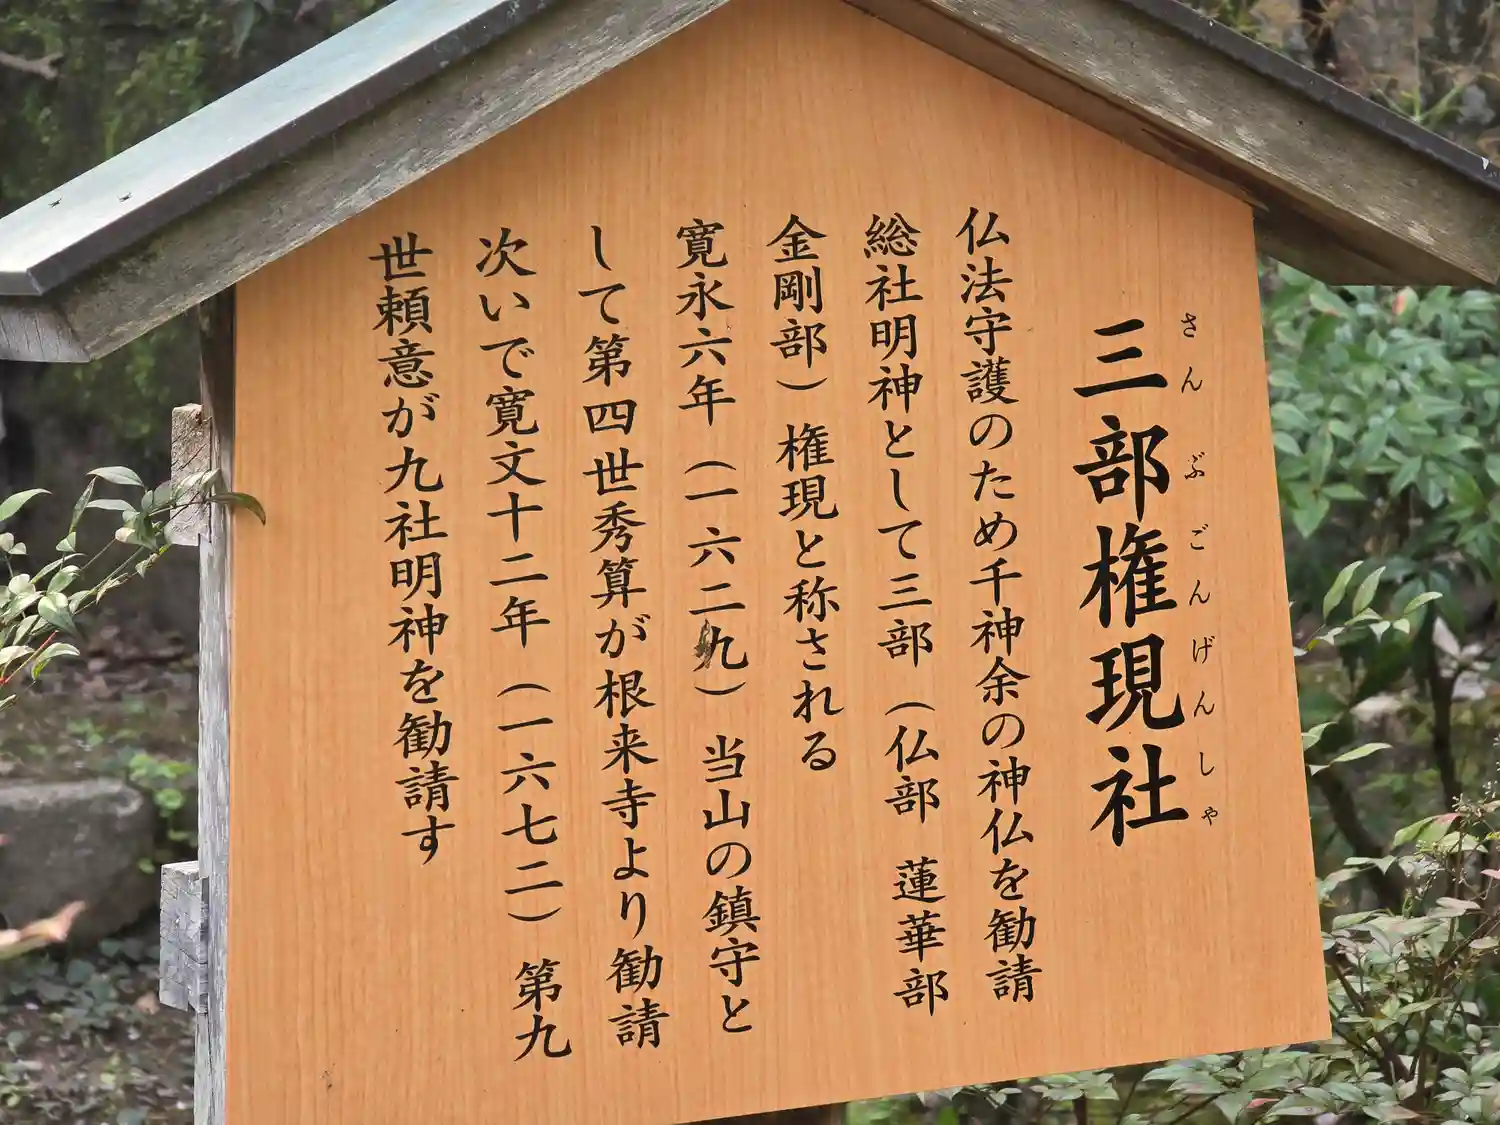 三部権現社
さんぶごんげんしゃ
仏法守護のため千神余の神仏を勧請
総社明神として三部（仏部 蓮華部
金剛部）権現と称される
寛永六年（一六二九）当山の鎮守と
して第四世秀算が根来寺より勧請
次いで寛文十二年（一六七二）第九
世頼意が九社明神を勧請す